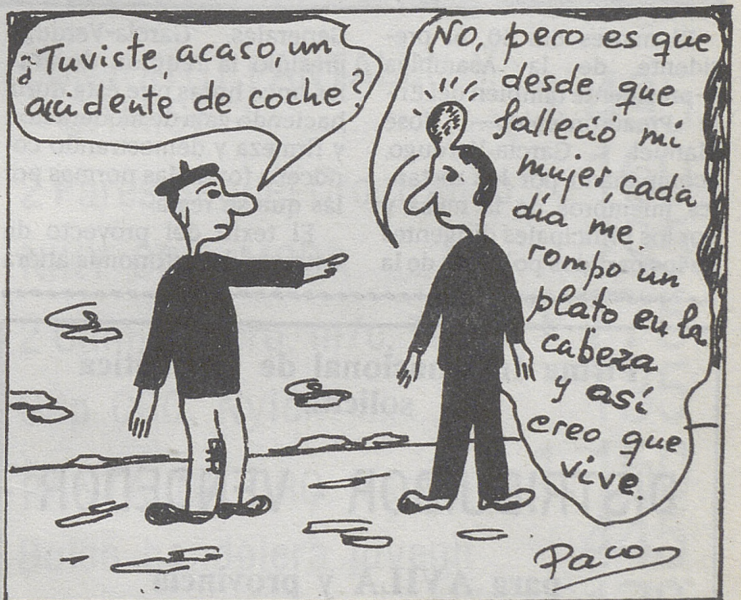 ¿Tuviste, acaso, un
accidente de coche?
No, pero es que
desde que
falleció mi
mujer, cada
día me
rompo un
plato en la
cabeza
y así
creo que
vive.
Paco